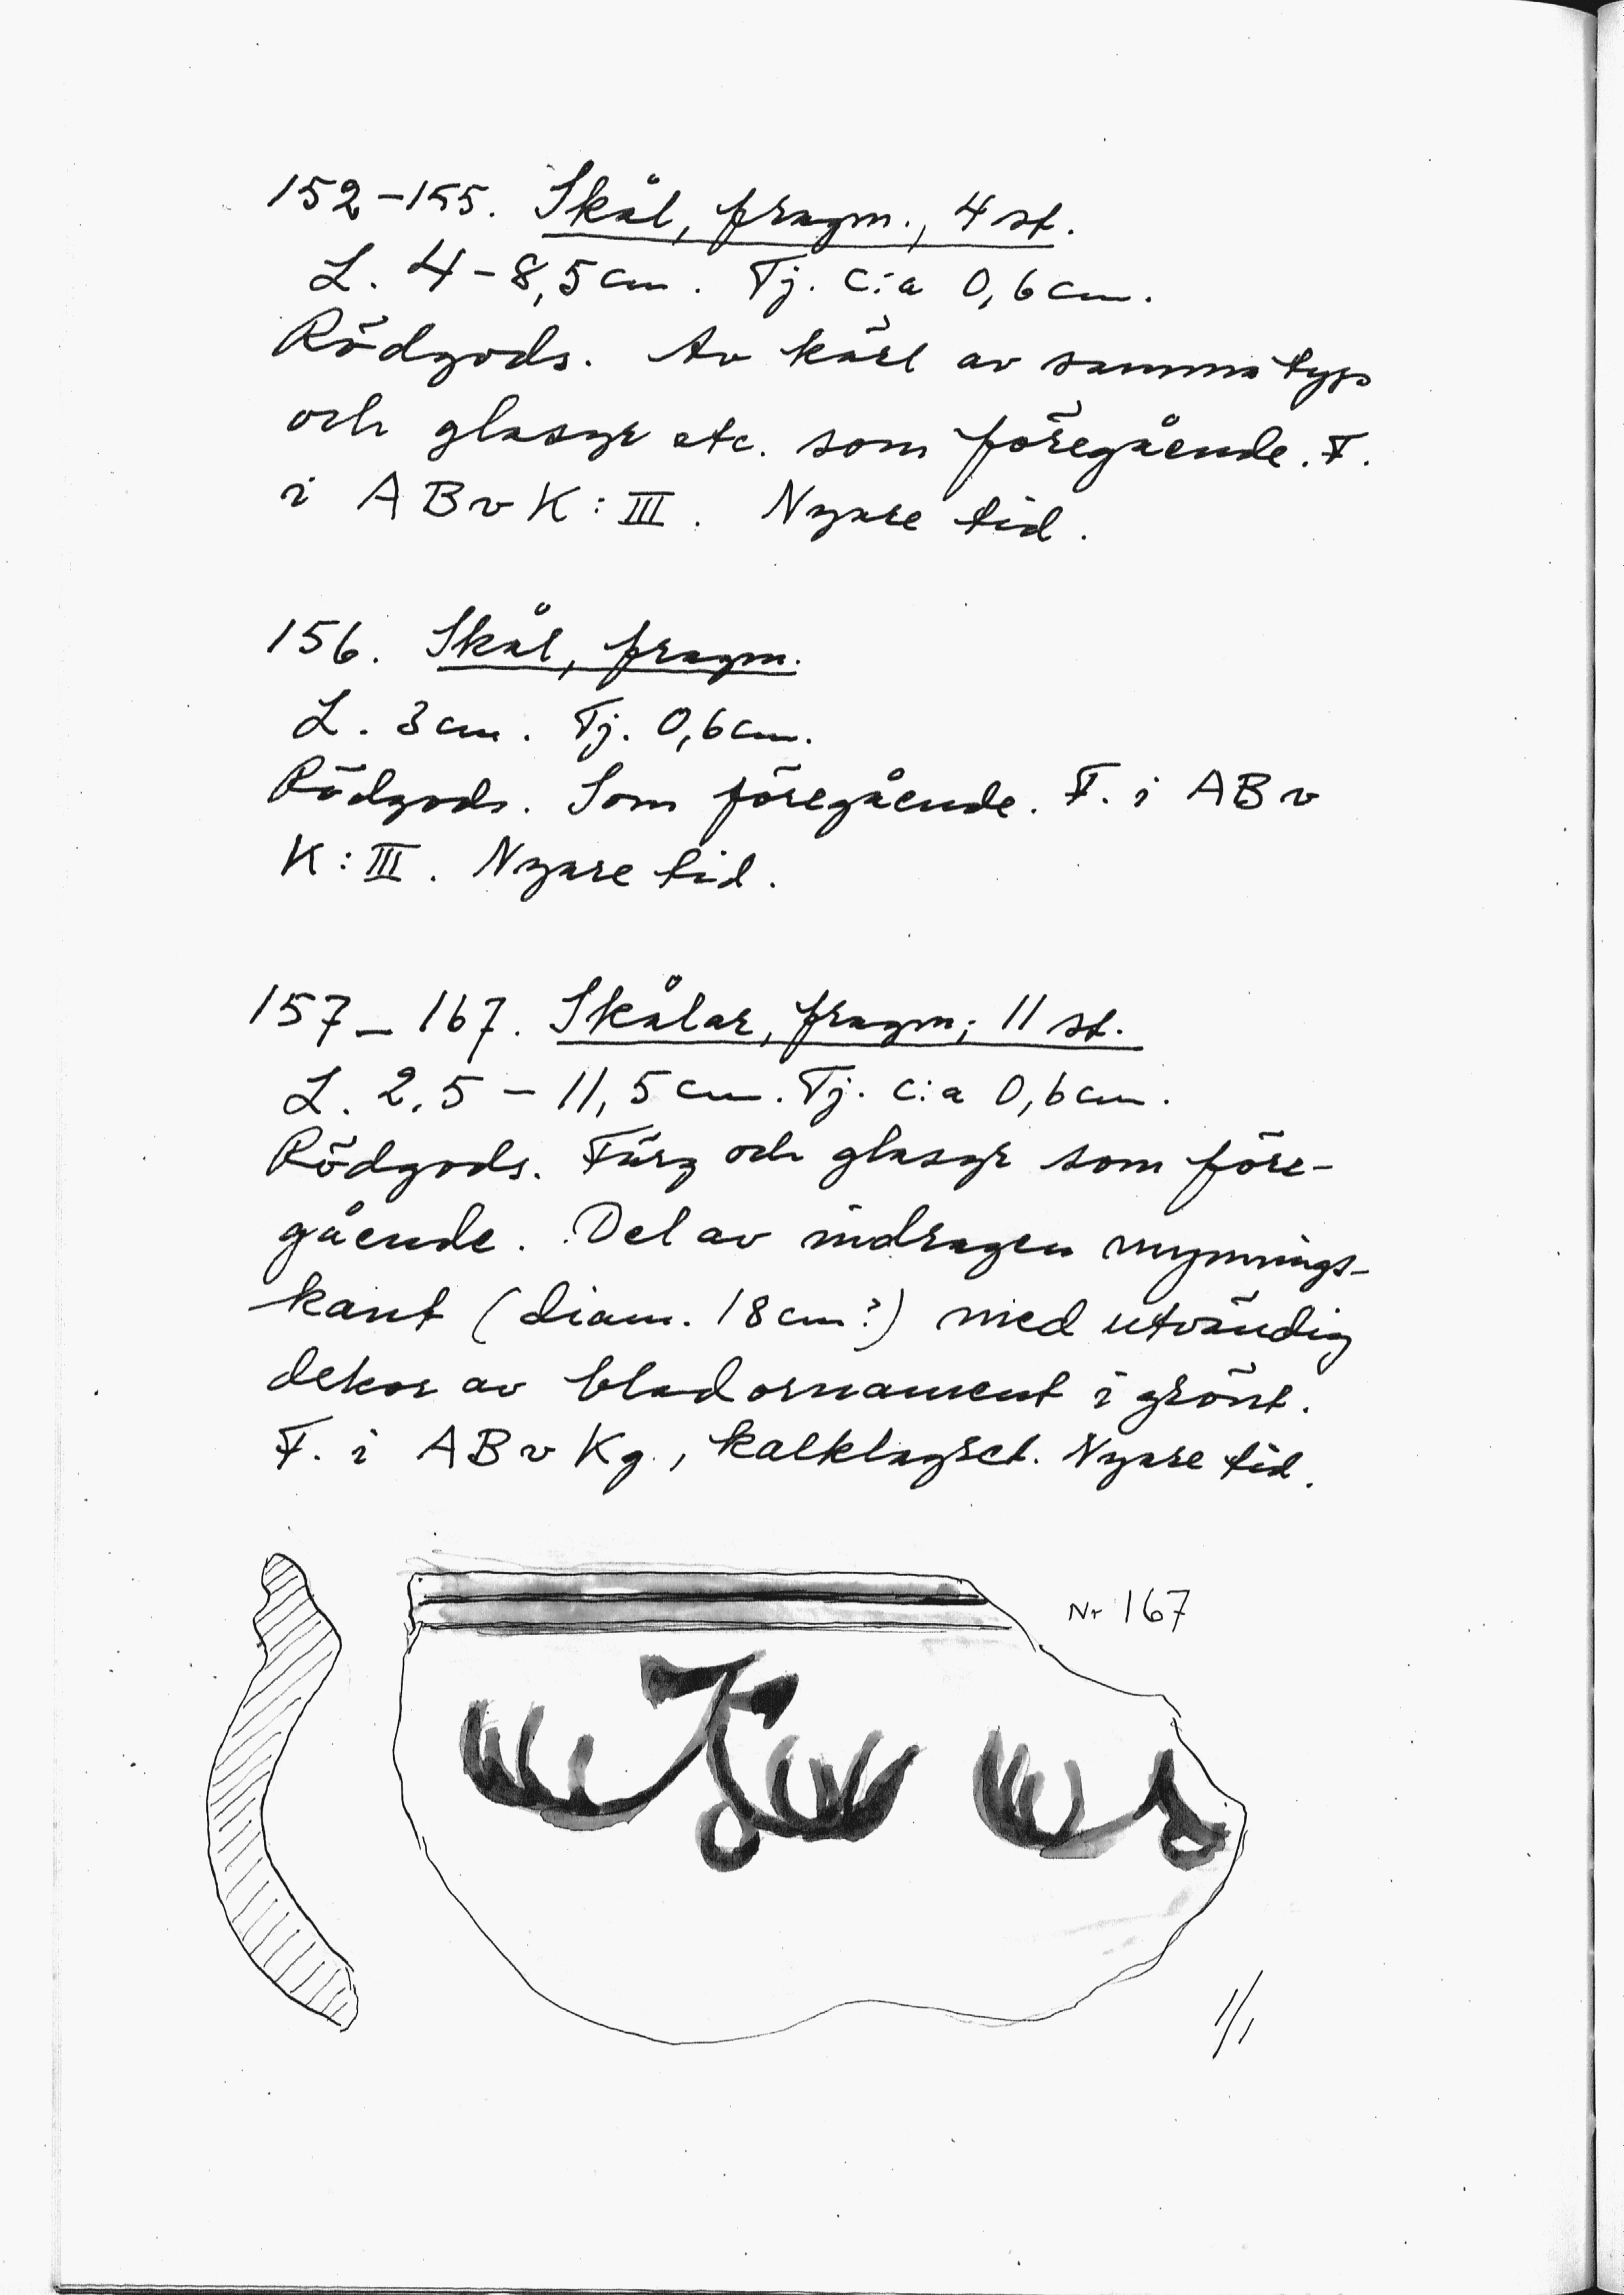 152-155. Skål, fragm., 4 st.
L. 4-8,5 cm. Tj. c:a 0,6 cm.
Rödgods. Av kärl av samma typ
och glasyr etc. som föregående. F.
i ABvK:III. Nyare tid.
156. Skål, fragm.
L. 3 cm. Tj. 0,6 cm.
Rödgods. Som föregående. F. i ABv
K:III. Nyare tid.
157-167. Skålar, fragm; 11 st.
L. 2,5-11,5 cm. Tj. c:a 0,6 cm.
Rödgods. Färg och glasyr som före-
gående. Del av indragen mynnings-
kant (diam. 18 cm?) med utvändig
dekor av bladornament i grönt.
F. i ABv Kg., kalklagret. Nyare tid.
Nr 167
1/1